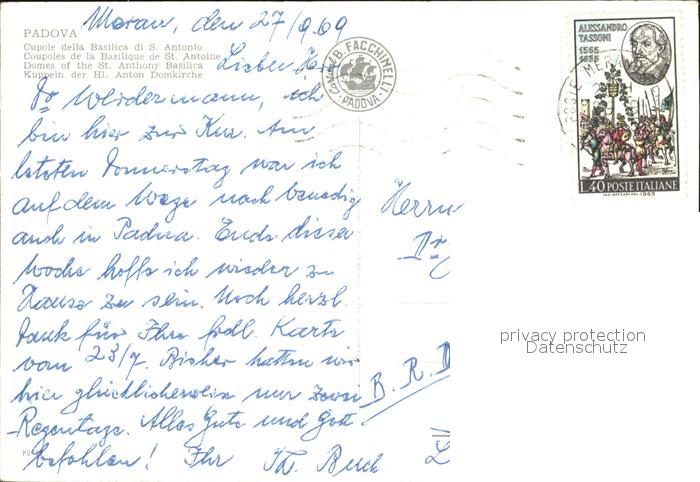 PADOVA
Cupole della Basilica di S. Antonio
Coupoles de la Basilique de St. Antoine
Domes of the St. Anthony Basilica
Kuppeln der Hl. Anton Domkirche
Meran, den 27/9.69
Lieber Herr
Dr Weidermann, ich
bin hier zur Kur. Am
letzten Donnerstag war ich
auf dem Wege nach Venedig
auch in Padua. Ende dieser
Woche hoffe ich wieder zu
Hause zu sein. Noch herzl.
Dank für Ihre frdl. Karte
vom 23/7. Bisher hatten wir
hier glücklicherweise nur zwei
Regentage. Alles Gute und Gott
befohlen! Ihr Th. Buch
B. FACCHINELLI
PADOVA
ALESSANDRO
TASSONI
1565
1635
L.40 POSTE ITALIANE
1965
Herrn
Dr
B. R. D
privacy protection
Datenschutz